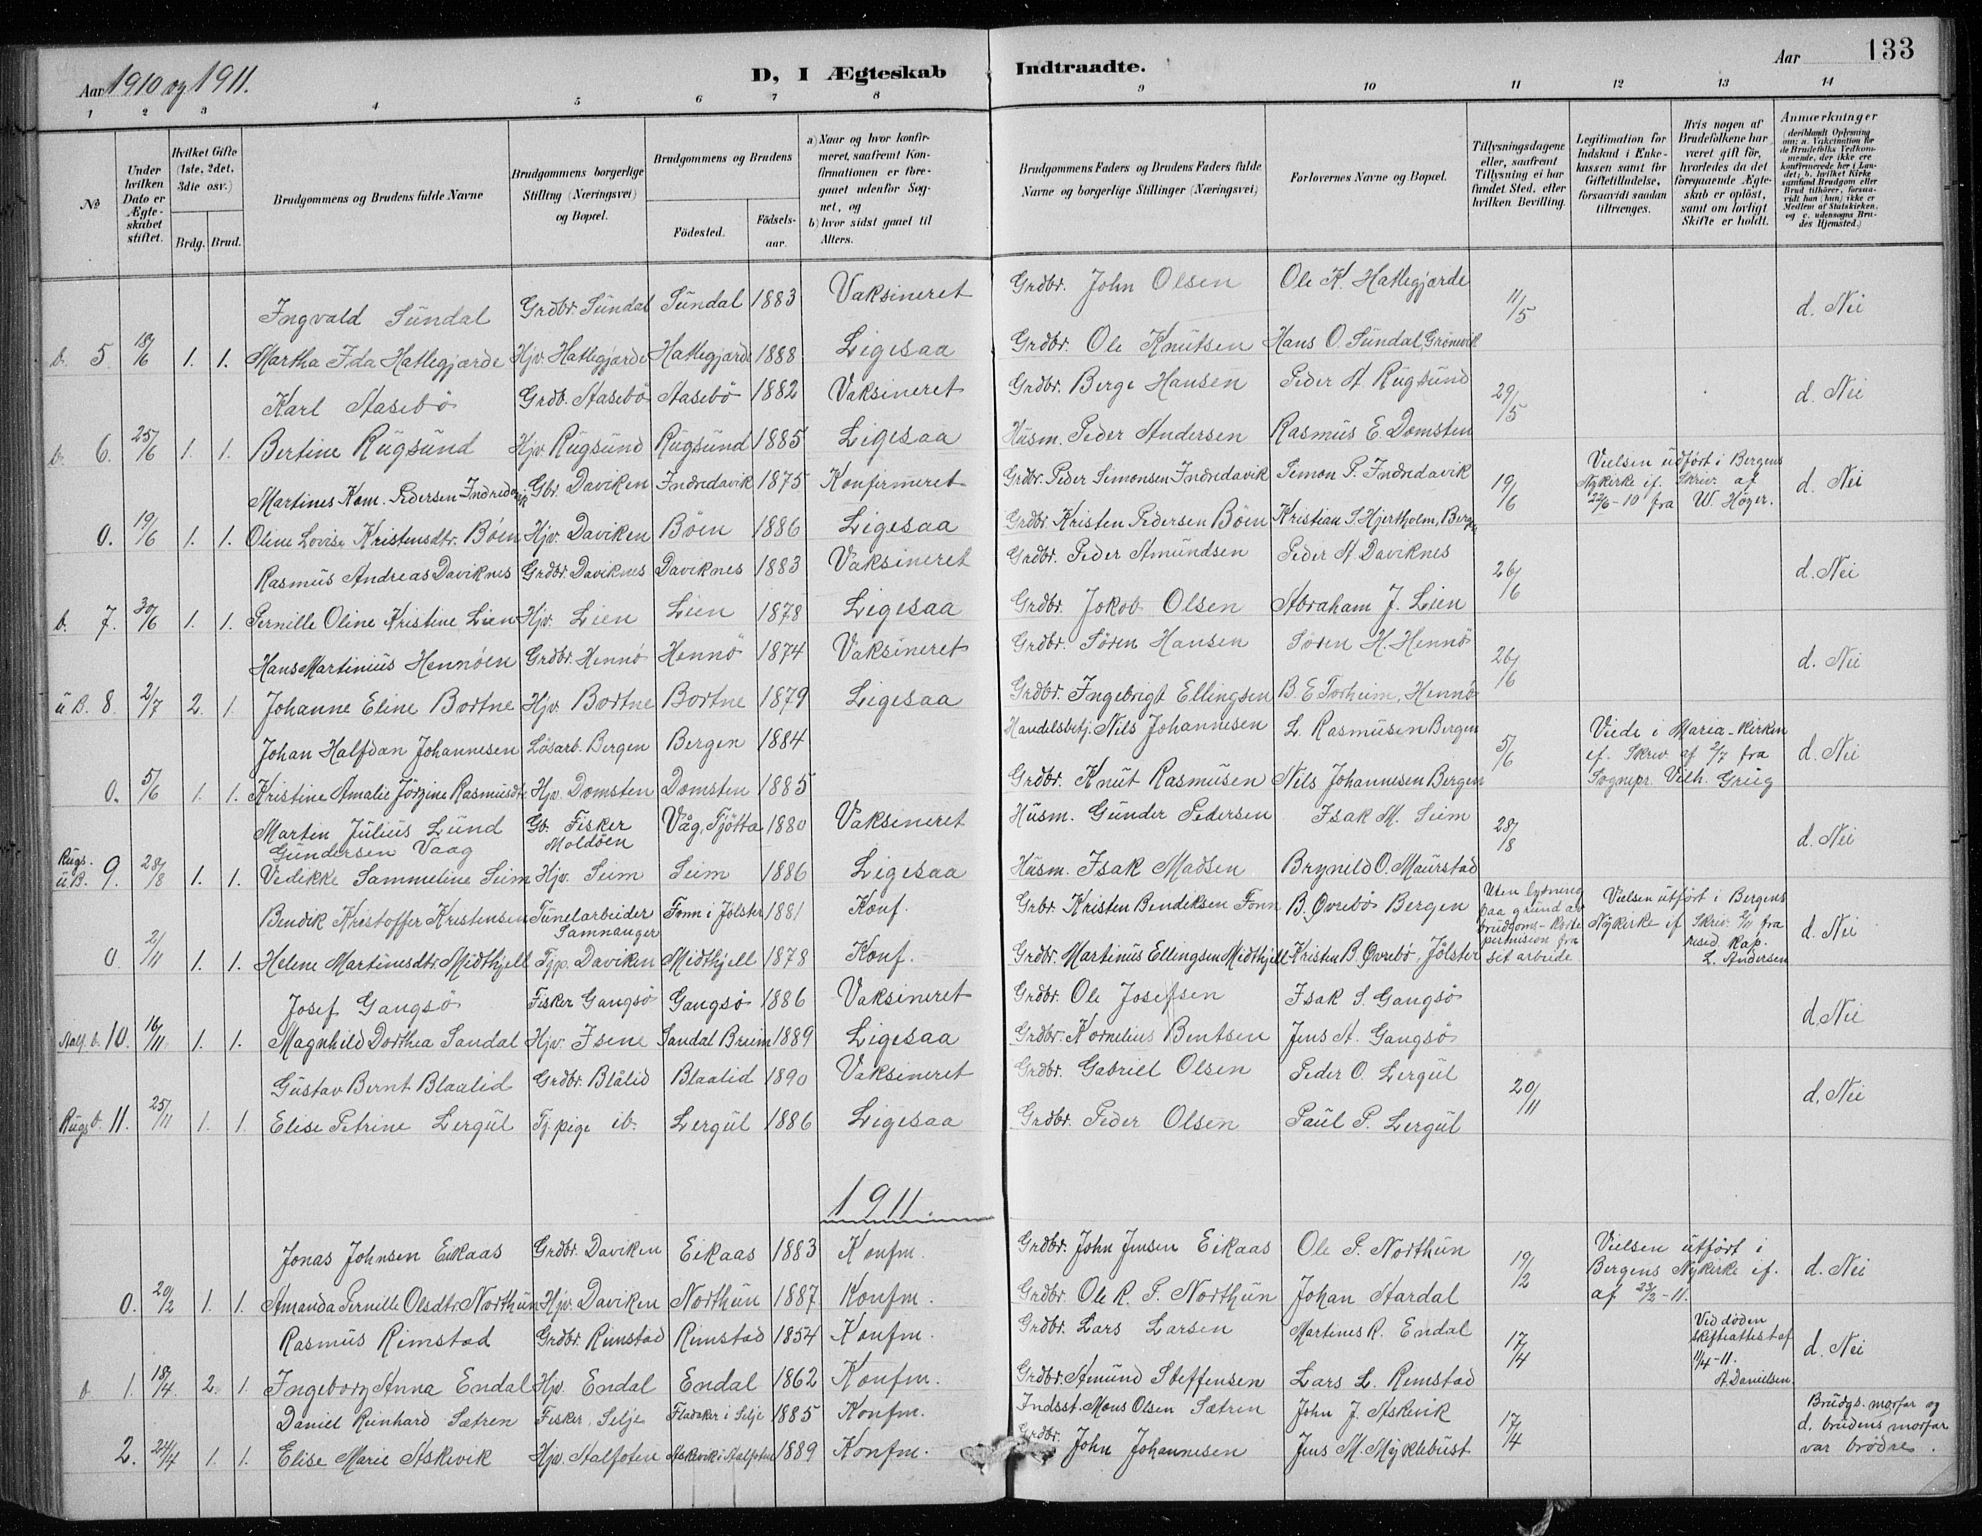 Aar 1910 og 1911.
D, I Ægteskab Indtraadte.
Aar 133
1 2 3 4 5 6 7 8 9 10 11 12 13 14
No
Under hvilken Dato er Ægteskabet stiftet.
Hvilket Gifte (1ste, 2det, 3die osv.)
Brdg. Brud.
Brudgommens og Brudens fulde Navne
Brudgommens borgerlige Stilling (Næringsvei) og Bopæl.
Brudgommens og Brudens
Födested. Födselsaar.
a) Naar og hvor konfirmeret, saafremt Konfirmationen er foregaaet udenfor Sognet, og
b) hvor sidst gaaet til Alters.
Brudgommens Faders og Brudens Faders fulde Navne og borgerlige Stillinger (Næringsvei)
Forlovernes Navne og Bopæl.
Tillysningsdagene eller, saafremt Tillysning ei har fundet Sted, efter hvilken Bevilling.
Legitimation for Indskud i Enkekassen samt for Giftetilladelse, forsaavidt saadan tiltrænges.
Hvis nogen af Brudefolkene har været gift för, hvorledes da det foregaaende Ægteskab er oplöst, samt om lovligt Skifte er holdt.
Anmærkninger (deriblandt Oplysning om: a. Vakcination for de Brudefolks Vedkommende, der ikke ere konfirmerede her i Landet; b. hvilket Kirkesamfund Brudgom eller Brud tilhörer, forsaavidt han (hun) ikke er Medlem af Statskirken, og c. udensogns Brudes Hjemsted.)
Ingvald Sundal Grdbr. Sundal Sundal 1883 Vaksineret Grdbr. John Olsen Ole K. Hatlegjærde 11/5 d. Nei
b. 5 18/6 1. 1. Martha Ida Hatlegjærde Hjv. Hatlegjærde Hatlegjærde 1888 Ligesaa Grdbr. Ole Knutsen Hans O. Sundal, Grönvik
Karl Aasebö Grdb. Aasebö Aasebö 1882 Vaksineret Grdbr. Berge Hansen Peder A. Rugsund 29/5 d. Nei
b. 6. 25/6 1. 1. Bertine Rugsund Hjv. Rugsund Rugsund 1885 Ligesaa Husm. Peder Andersen Rasmus E. Domsten
Martines Kom. Pedersen Indredavik Gbr. Daviken Indredavik 1875 Konfirmeret Grdbr. Peder Simonsen Indredavik Simon P. Indredavik 19/6 Vielsen udført i Bergens Nykirke if. Skriv. af 22/6-10 fra W. Höger. d. Nei
0. 19/6 1. 1. Oline Lovise Kristensdtr. Böen Hjv. Daviken Böen 1886 Ligesaa Grdbr. Kristen Pedersen Böen Kristian S. Hjertholm, Bergen
Rasmus Andreas Daviknes Grdbr. Daviknes Daviknes 1883 Vaksineret Grdbr. Peder Amundsen Peder A. Daviknes 26/6 d. Nei
b. 7. 30/6 1. 1. Pernille Oline Kristine Lien Hjv. Lien Lien 1878 Ligesaa Grdbr. Jokob Olsen Abraham J. Lien
Hans Martinius Hennöen Grdbr. Hennö Hennö 1874 Vaksineret Grdbr. Sören Hansen Sören H. Hennö 26/6 d. Nei
u B. 8. 2/7 2. 1. Johanne Eline Bortne Hjv. Bortne Bortne 1879 Ligesaa Grdbr. Ingebrigt Ellingsen B. E. Torheim, Hennö
Johan Halfdan Johannesen Lösarb. Bergen Bergen 1884 Handelsbetj. Nils Johannesen L. Rasmusen Bergen 5/6 Viede i Maria-Kirken ef. Skriv af 2/7 fra Sognepr. Vilh. Grieg d. Nei
0. 5/6 1. 1. Kristine Amalie Jörgine Rasmusdtr. Hjv. Domsten Domsten 1885 Grdbr. Knut Rasmusen Nils Johannesen Bergen
Martin Julius Lund Gundersen Vaag Gb. Fisker Moldöen Våg, Tjötta 1880 Vaksineret Husm. Gunder Pedersen Isak M. Seim 28/8 d. Nei
Rugs. u B. 9. 28/8 1. 1. Vedikke Sammeline Seim Hjv. Seim Seim 1886 Ligesaa Husm. Isak Madsen Brynild O. Maurstad
Bendik Kristoffer Kristensen Tunelarbeider Samnanger Fonn i Jölster 1881 Konf. Grbr. Kristen Bendiksen Fonn B. Övrebö Bergen Uten lysning paa grund av brudgoms- korte permision fra sit arbeide Vielsen utfört i Bergens Nykirke if Skriv. 2/11 fra resid. Kap. L. Andersen d. Nei
0. 2/11 1. 1. Helene Martinusdtr. Midthjell Tjp. Daviken Midthjell 1878 Konf. Grdbr. Martinus Ellingsen Midthjell Kristen B. Övrebö, Jölster
Josef Gangsö Fisker Gangsö Gangsö 1886 Vaksineret Grdbr. Ole Josefsen Isak S. Gangsö d. Nei
Aalf. b. 10. 16/11 1. 1. Magnhild Dorthea Sandal Hjv. Isene Sandal Breim 1889 Ligesaa Grdbr. Kornelius Bentsen Jens A. Gangsö
Gustav Bernt Blaalid Grdbr. Blålid Blaalid 1890 Vaksineret Grdbr. Gabriel Olsen Peder O. Lergul 20/11 d. Nei
Rugs b. 11. 25/11 1. 1. Elise Petrine Lergul Tj. pige ib. Lergul 1886 Ligesaa Grdbr. Peder Olsen Paul P. Lergul
1911.
Jonas Johnsen Eikaas Grdbr. Daviken Eikaas 1883 Konfm. Grdbr. John Jensen Eikaas Ole P. Northun 19/2 Vielsen utfört i Bergens Nykirke ef. af 23/2-11. d. Nei
0. 20/2 1. 1. Amanda Pernille Olsdtr. Northun Hjv. Daviken Northun 1887 Konfm. Grdbr. Ole R. P. Northun Johan Aardal
Rasmus Rimstad Grdbr. Rimstad Rimstad 1854 Konfm. Grdbr. Lars Larsen Martines R. Endal 17/4 Ved döden skifteattest af 11/4-11. A. Danielsen. d. Nei
b 1. 18/4. 2. 1. Ingeborg Anna Endal Hjv. Endal Endal 1862 Konfm. Grdbr. Amund Steffensen Lars L. Rimstad
Daniel Reinhard Sætren Fisker, Selje Fladaker i Selje 1885 Konfm. Indsst. Mons Olsen Sætren John J. Askevik 17/4 Brudgs. morfar og d. brudens morfar var brødre.
2. 24/4 1. 1. Elise Marie Askevik Hjv. Aalfoten Askevik i Aalfoten 1889 Konfm. Grdbr. John Johannesen Jens M. Myklebust